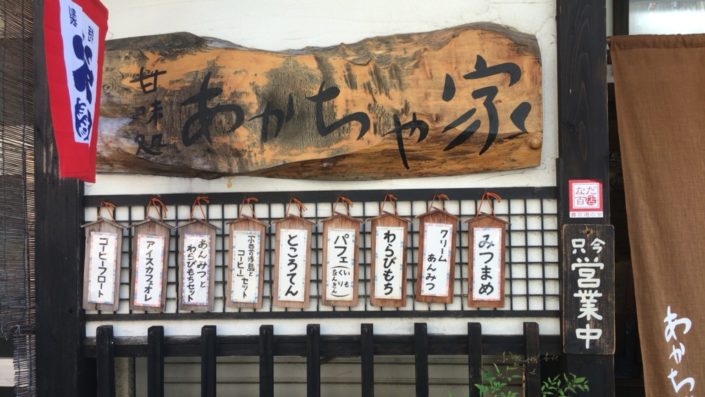 甘味処
あかちゃ家
みつまめ
クリーム
あんみつ
わらびもち
パフェ
ところてん
コーヒーセット
あんみつと
わらびもちセット
アイスカフェオレ
コーヒーフロート
只今
営業中
なだ
百選
あかち
氷